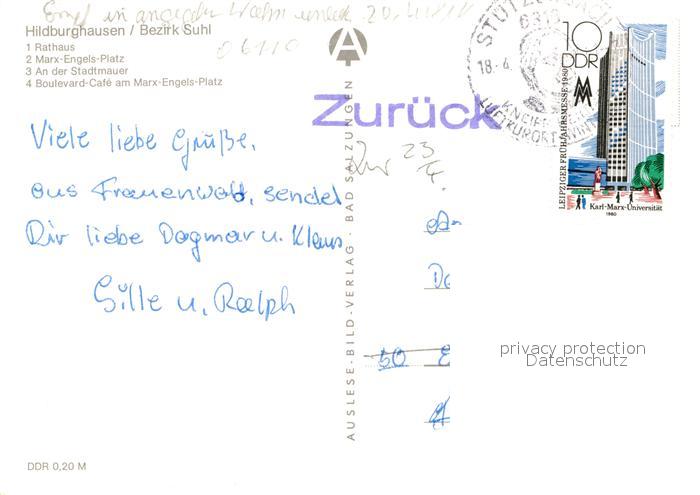 Hildburghausen / Bezirk Suhl
1 Rathaus
2 Marx-Engels-Platz
3 An der Stadtmauer
4 Boulevard-Café am Marx-Engels-Platz
06110
Viele liebe Grüße,
aus Frauenwald, sendet
Dir liebe Dagmar u. Klaus
Sille u. Ralph
DDR 0,20 M
AUSLESE-BILD-VERLAG · BAD SALZUNGEN
Zurück
23
4.
STÜTZERBACH
6310
18.4
KNEIPP
LUFTKURORT
10
DDR
MM
LEIPZIGER FRÜHJAHRSMESSE 1980
Karl-Marx-Universität
1980
50 E
privacy protection
Datenschutz